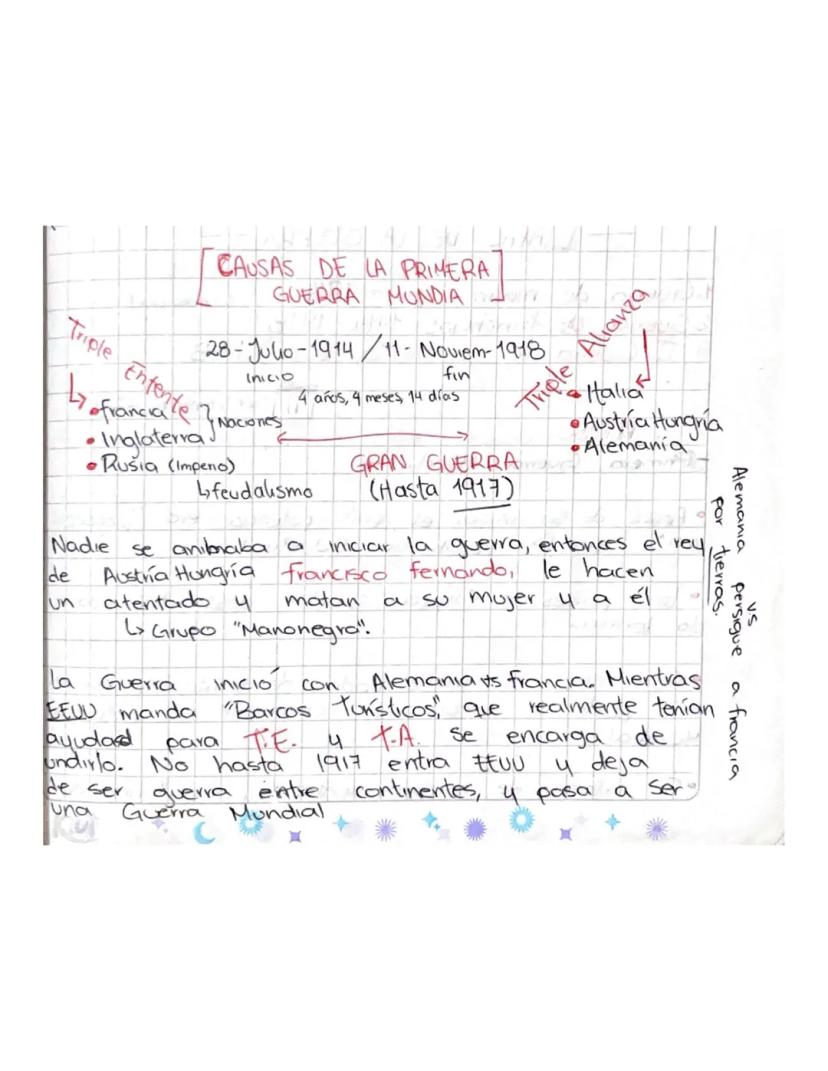 [CAUSAS DE LA PRIMERA
GUERRA MUNDIA]
28-Julio-1914 / 11-Noviem-1918
inicio fin
4 años, 4 meses, 14 días
Triple Entente
• francia
• Inglaterra } Naciones
• Rusia (Imperio)
↳ feudalismo
Triple Alianza
• Italia
• Austría Hungría
• Alemania
GRAN GUERRA
(Hasta 1917)
Nadie se anibnaba a iniciar la guerra, entonces el rey
de Austría Hungría francisco fernando, le hacen
un atentado y matan a su mujer y a él
↳ Grupo "Manonegra".
La Guerra inició con Alemania vs francia. Mientras
EEUU manda "Barcos turísticos", que realmente tenían
ayudad para T.E. y T.A. se encarga de
undirlo. No hasta 1917 entra EEUU y deja
de ser guerra entre continentes, y pasa a ser
una Guerra Mundial
Alemania vs persigue a francia
por tierras.